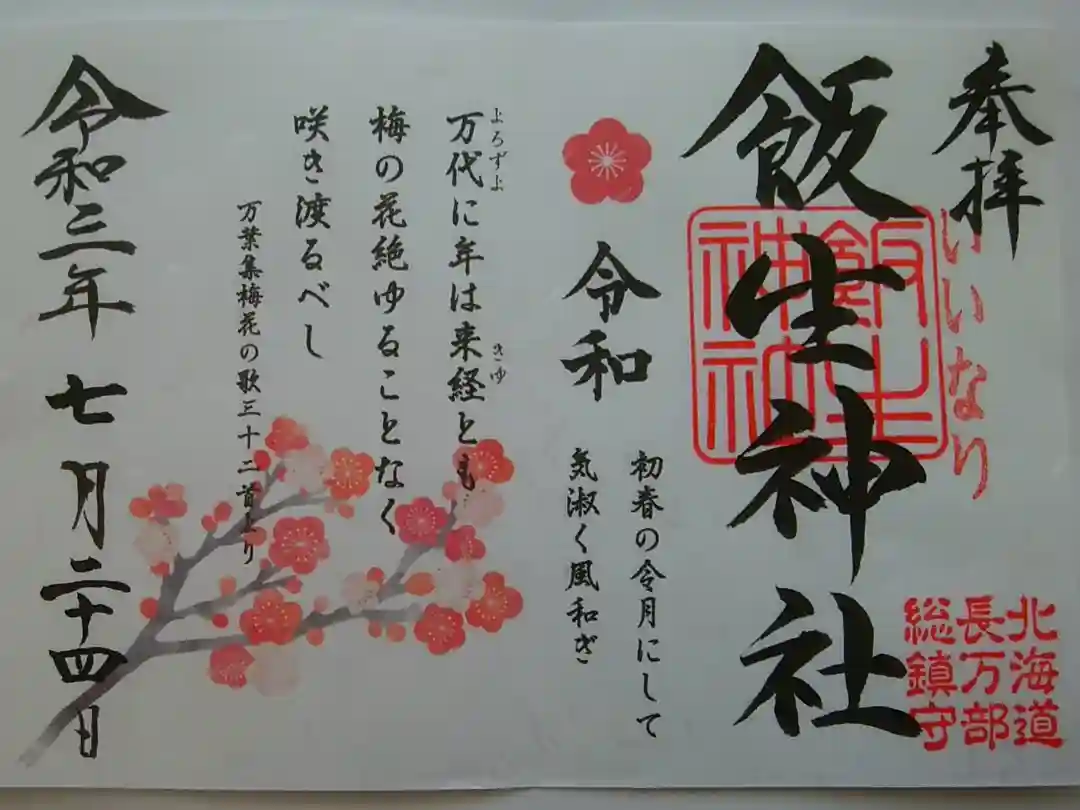 奉拝
いいなり
北海道
長万部
総鎮守
飯生神社
飯生
神社
令和
初春の令月にして
気淑く風和ぎ
よろずよ
万代に年は来経とも
きゆ
梅の花絶ゆることなく
咲き渡るべし
万葉集梅花の歌三十二首より
令和三年七月二十四日